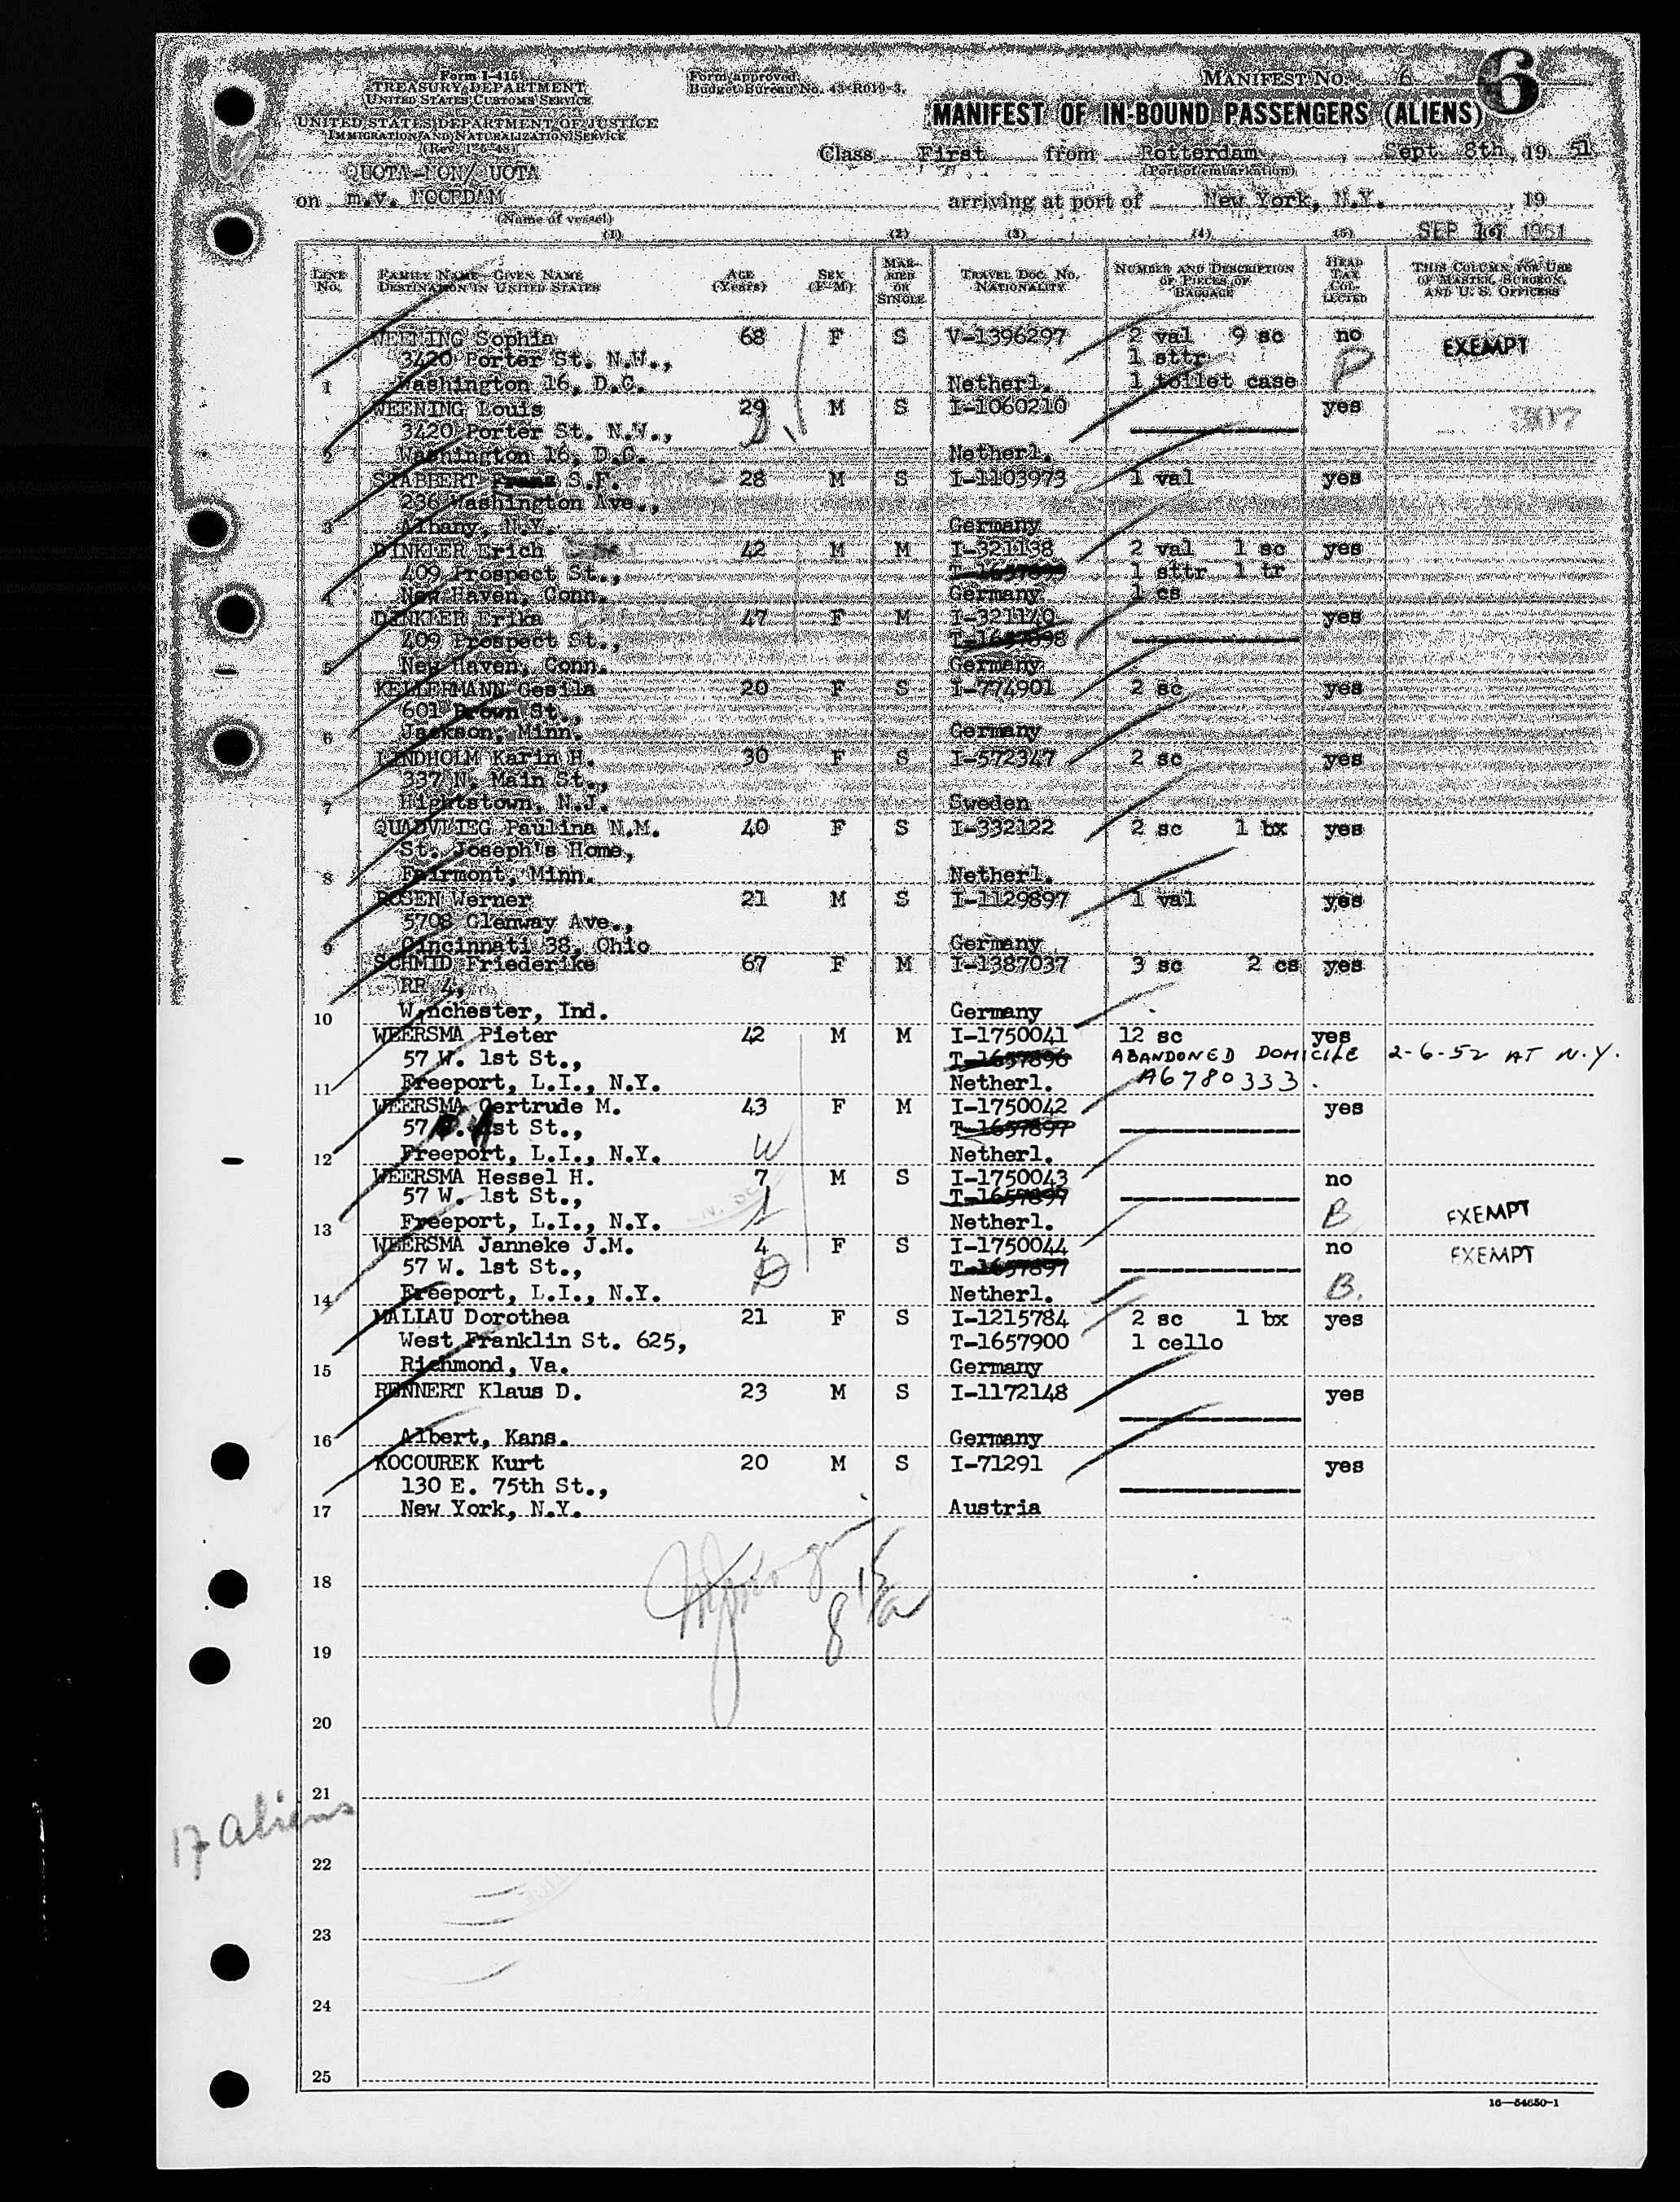 Form I-415
TREASURY DEPARTMENT
UNITED STATES CUSTOMS SERVICE
UNITED STATES DEPARTMENT OF JUSTICE
IMMIGRATION AND NATURALIZATION SERVICE
(Rev. 1-6-48)
Form approved.
Budget Bureau No. 43-R019-3.
MANIFEST NO. 6
6
MANIFEST OF IN-BOUND PASSENGERS (ALIENS)
Class First from Rotterdam, Sept. 8th, 19 51
(Port of embarkation)
on m.v. NOORDAM arriving at port of New York, N.Y., 19
(Name of vessel)
SEP 1951
(1) (2) (3) (4) (5)
LINE NO. FAMILY NAME—GIVEN NAME DESTINATION IN UNITED STATES AGE (Years) SEX (F-M) MARRIED OR SINGLE TRAVEL DOC. NO. NATIONALITY NUMBER AND DESCRIPTION OF PIECES OF BAGGAGE HEAD TAX COLLECTED THIS COLUMN FOR USE OF MASTER, SURGEON, AND U. S. OFFICERS
WEENING Sophia 68 F S V-1396297 2 val 9 sc no EXEMPT
3420 Porter St. N.W., 1 sttr
1 Washington 16, D.C. Netherl. 1 toilet case
WEENING Louis 29 M S I-1060210 yes 307
3420 Porter St. N.W.,
2 Washington 16, D.C. Netherl.
STABBERT Franz S.F. 28 M S I-1103973 1 val yes
236 Washington Ave.,
3 Albany, N.Y. Germany
DINKLER Erich 42 M M I-321138 2 val 1 sc yes
409 Prospect St., T-1657899 1 sttr 1 tr
4 New Haven, Conn. Germany 1 cs
DINKLER Erika 47 F M I-321140 yes
409 Prospect St., T-1657898
5 New Haven, Conn. Germany
KELLERMANN Gesila 20 F S I-774901 2 sc yes
601 Brown St.,
6 Jackson, Minn. Germany
LINDHOLM Karin H. 30 F S I-572347 2 sc yes
337 N. Main St.,
7 Hightstown, N.J. Sweden
QUADVLIEG Paulina N.M. 40 F S I-332122 2 sc 1 bx yes
St. Joseph's Home,
8 Fairmont, Minn. Netherl.
ROSEN Werner 21 M S I-1129897 1 val yes
5708 Glenway Ave.,
9 Cincinnati 38, Ohio Germany
SCHMID Friederike 67 F M I-1387037 3 sc 2 cs yes
RR 4,
10 Winchester, Ind. Germany
WEERSMA Pieter 42 M M I-1750041 12 sc yes
57 W. 1st St., T-1657896 ABANDONED DOMICILE 2-6-52 AT N.Y.
11 Freeport, L.I., N.Y. Netherl. A6780333.
WEERSMA Gertrude M. 43 F M I-1750042 yes
57 W. 1st St., T-1657897
12 Freeport, L.I., N.Y. Netherl.
WEERSMA Hessel H. 7 M S I-1750043 no
57 W. 1st St., T-1657897
13 Freeport, L.I., N.Y. Netherl. B EXEMPT
WEERSMA Janneke J.M. 4 F S I-1750044 no EXEMPT
57 W. 1st St., T-1657897
14 Freeport, L.I., N.Y. Netherl. B.
MALLAU Dorothea 21 F S I-1215784 2 sc 1 bx yes
West Franklin St. 625, T-1657900 1 cello
15 Richmond, Va. Germany
RENNERT Klaus D. 23 M S I-1172148 yes
16 Albert, Kans. Germany
KOCOUREK Kurt 20 M S I-71291 yes
130 E. 75th St.,
17 New York, N.Y. Austria
18
19
20
21
17 aliens
22
23
24
25
16—54650-1